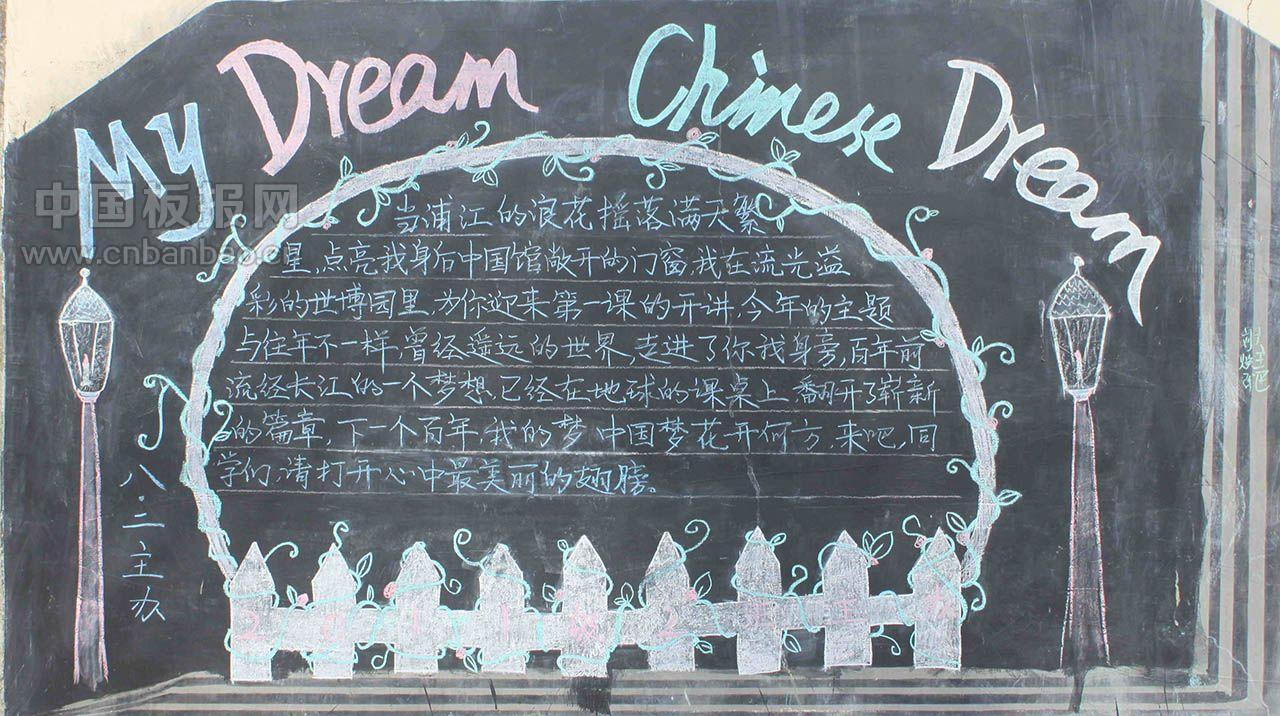 My Dream Chinese Dream
中国板报网
www.cnbanbao.cn
当浦江的浪花摇落满天繁
星,点亮我身后中国馆敞开的门窗,我在流光溢
彩的世博园里,为你迎来第一课的开讲,今年的主题
与往年不一样,曾经遥远的世界,走进了你我身旁,百年前
流经长江的一个梦想,已经在地球的课桌上翻开了崭新
的篇章,下一个百年,我的梦 中国梦花开何方,来吧,同
学们,请打开心中最美丽的翅膀。
八.二主办